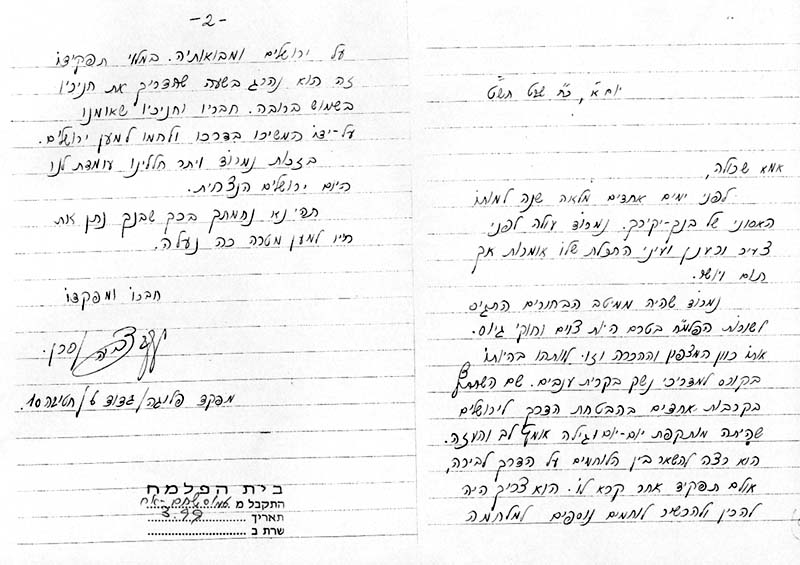 יום א', כ"ח שבט תש"ט
אמא שכולה,
לפני ימים אחדים מלאה שנה למותו
האסוני של בנך-יקירך. נמרוד עולה לפני
צעיר ורענן ועיני התכלת שלו אומרות אך
תום ויושר.
נמרוד שהיה ממיטב הבחורים התגיס
לשורות הפלמ"ח בטרם היות צוים וחוקי גיוס.
אותו כוון המצפון וההכרה וזו לוותהו בהיותו
בקורס למדריכי נשק בקרית ענבים. שם השתתף
בקרבות אחדים בהבטחת הדרך לירושלים
שהיתה מותקפת יום-יום וגילה אומץ לב והעזה.
הוא רצה להשאר בין הלוחמים על הדרך לבירה,
אולם תפקיד אחר קרא לו. הוא צריך היה
להכין ולהכשיר לוחמים נוספים למלחמה
-2-
על ירושלים ומבואותיה. במלוי תפקידו
זה הוא נהרג בשעה שהדריך את חניכיו
בשמוש ברובה. חבריו וחניכיו שאומנו
על-ידו המשיכו בדרכו ולחמו למען ירושלים.
בזכות נמרוד ויתר חללינו עומדת לנו
היום ירושלים הנצורית.
תהי נא נחמתך בכך שבנך נתן את
חייו למען מטרה כה נעלה.
חברו ומפקדו
/סרן.
מפקד פלוגה/גדוד 6/חטיבה 10.
בית הפלמח
התקבל מ
תאריך 3.99
שרת ב